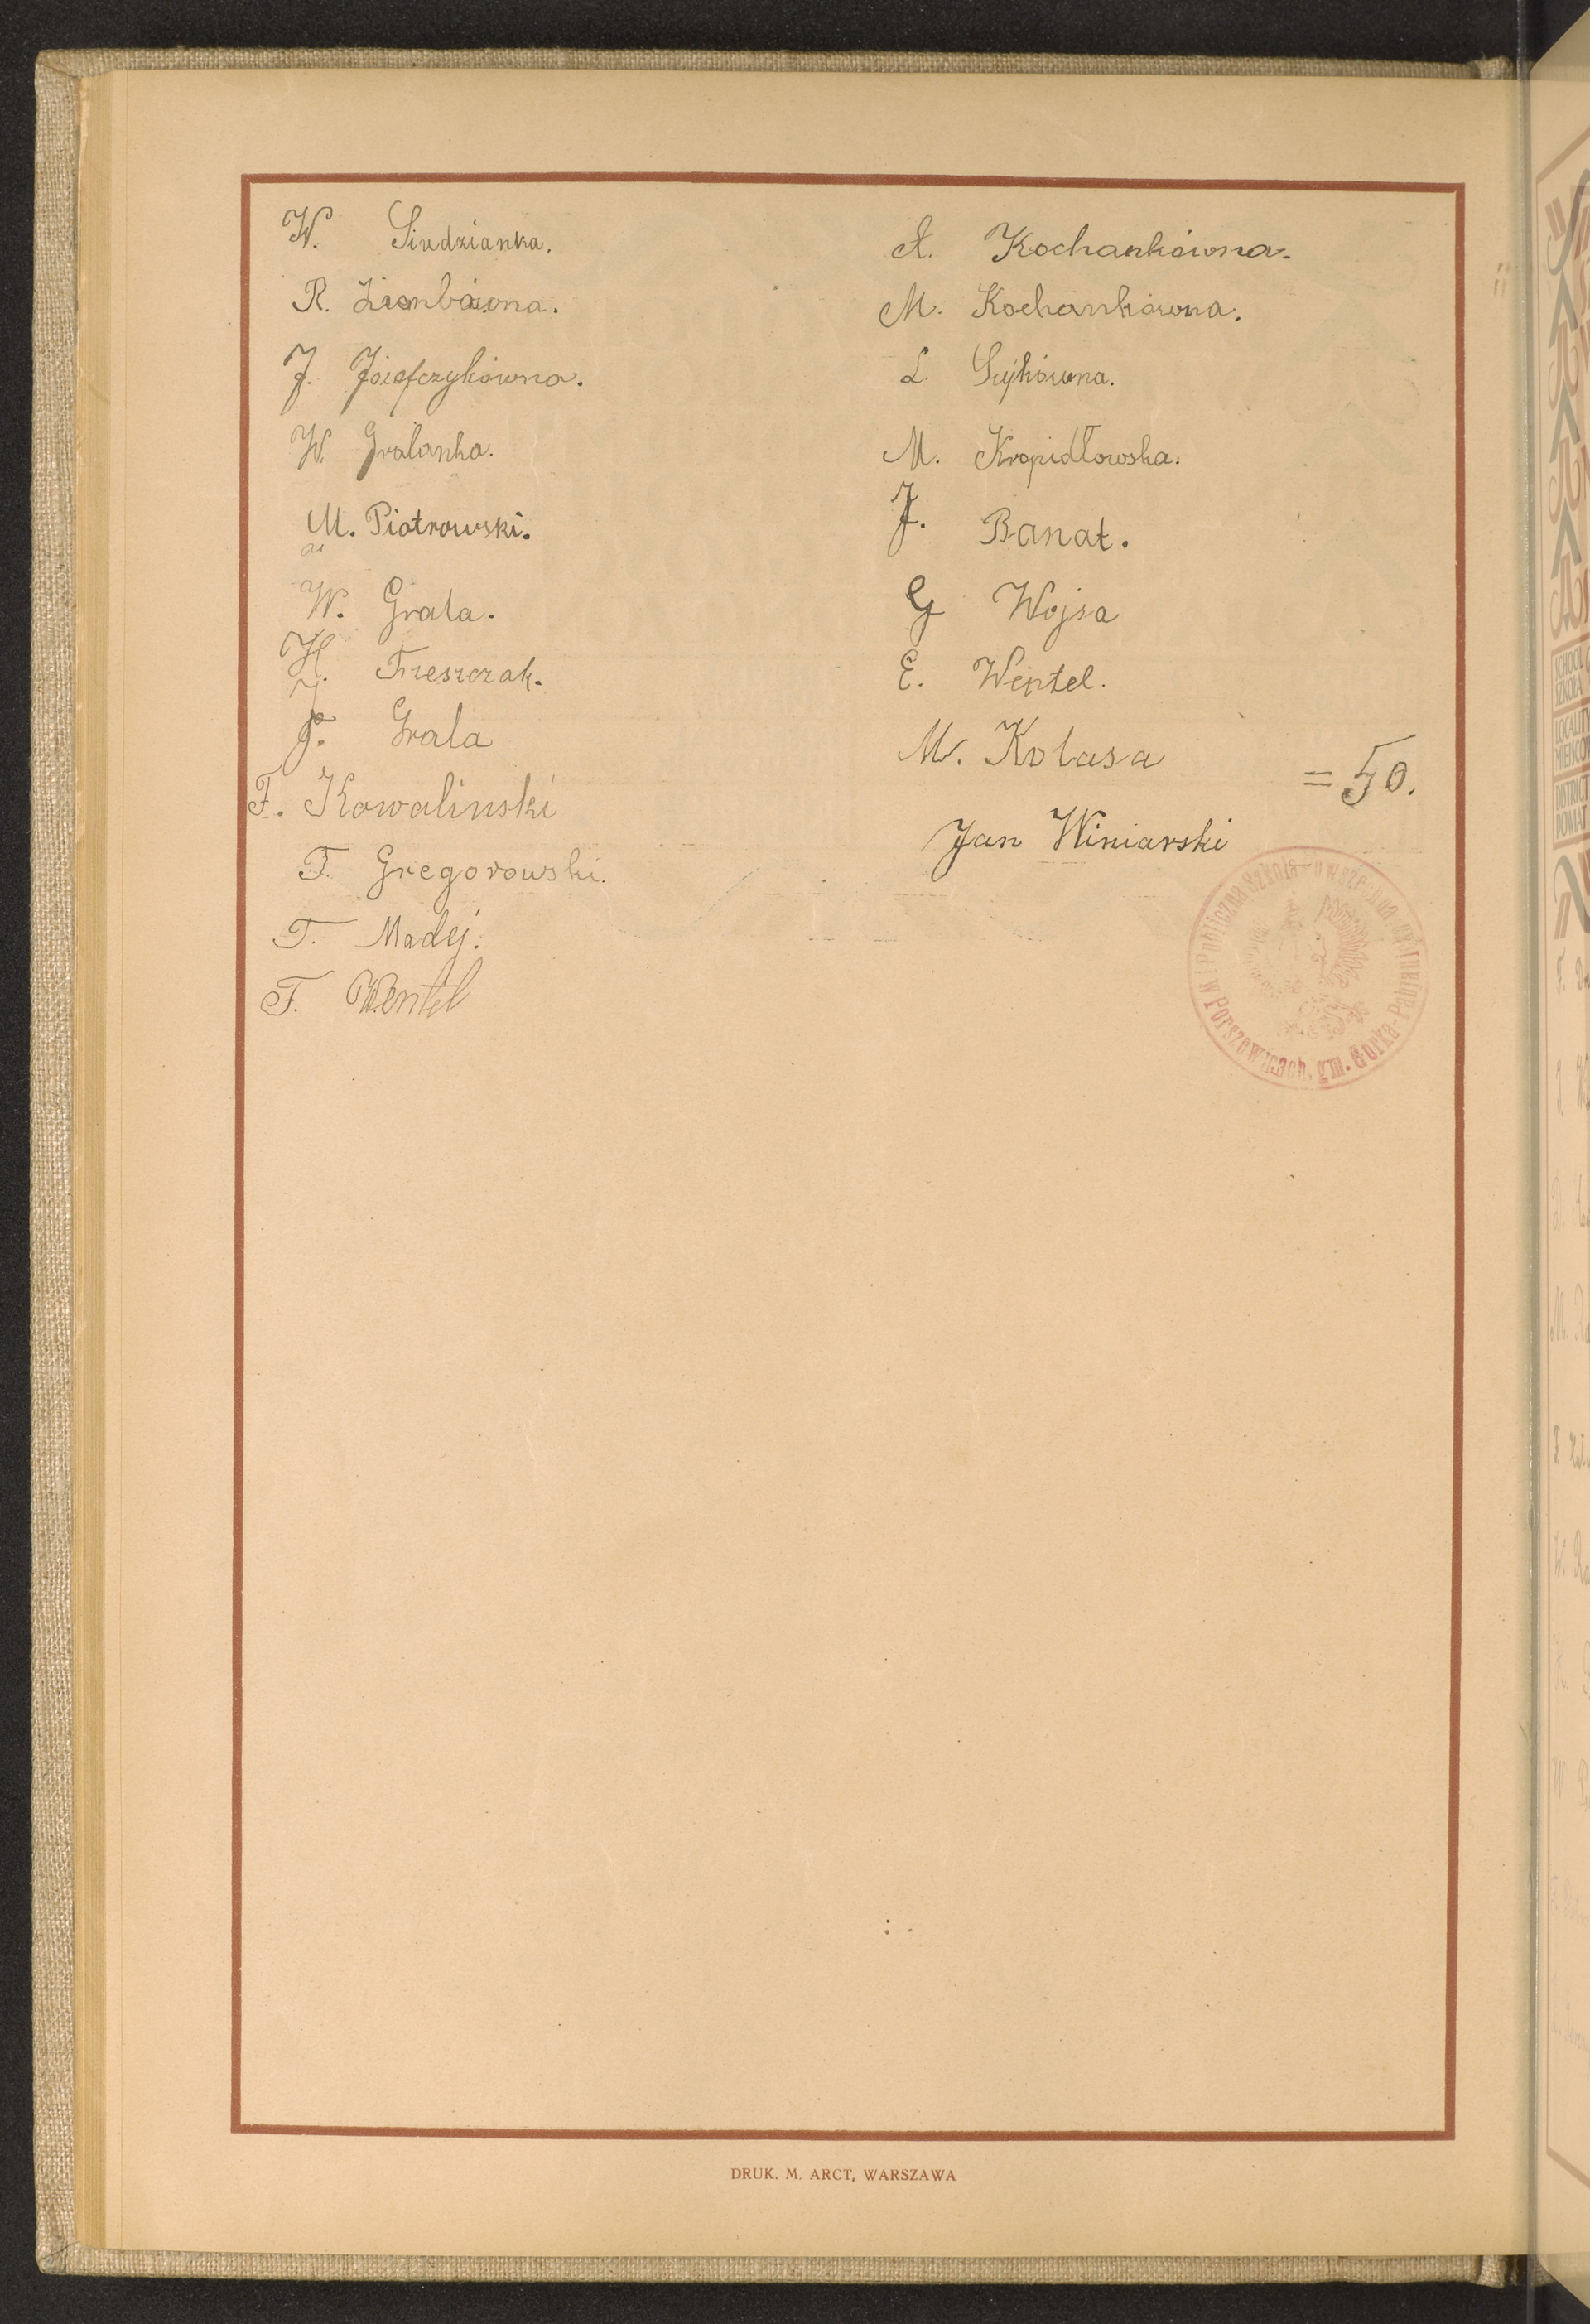 W. Siudzianka.
R. Ziembówna.
J. Józefczykówna.
W. Gralanka.
M. Piotrowski.
W. Grala.
H. Trzeszczak.
J. Grala
F. Kowalinski
T. Gregorowski.
T. Madej.
F. Wentel
A. Kochankówna.
M. Kochankówna.
L. Szykówna.
M. Kropidłowska.
J. Banat.
G Wojsa
E. Wentel.
M. Kolasa
= 50.
Jan Winiarski
Publiczna Szkoła Powszechna
w Porszewicach, gm. Górka-Pabjanicka
DRUK. M. ARCT, WARSZAWA